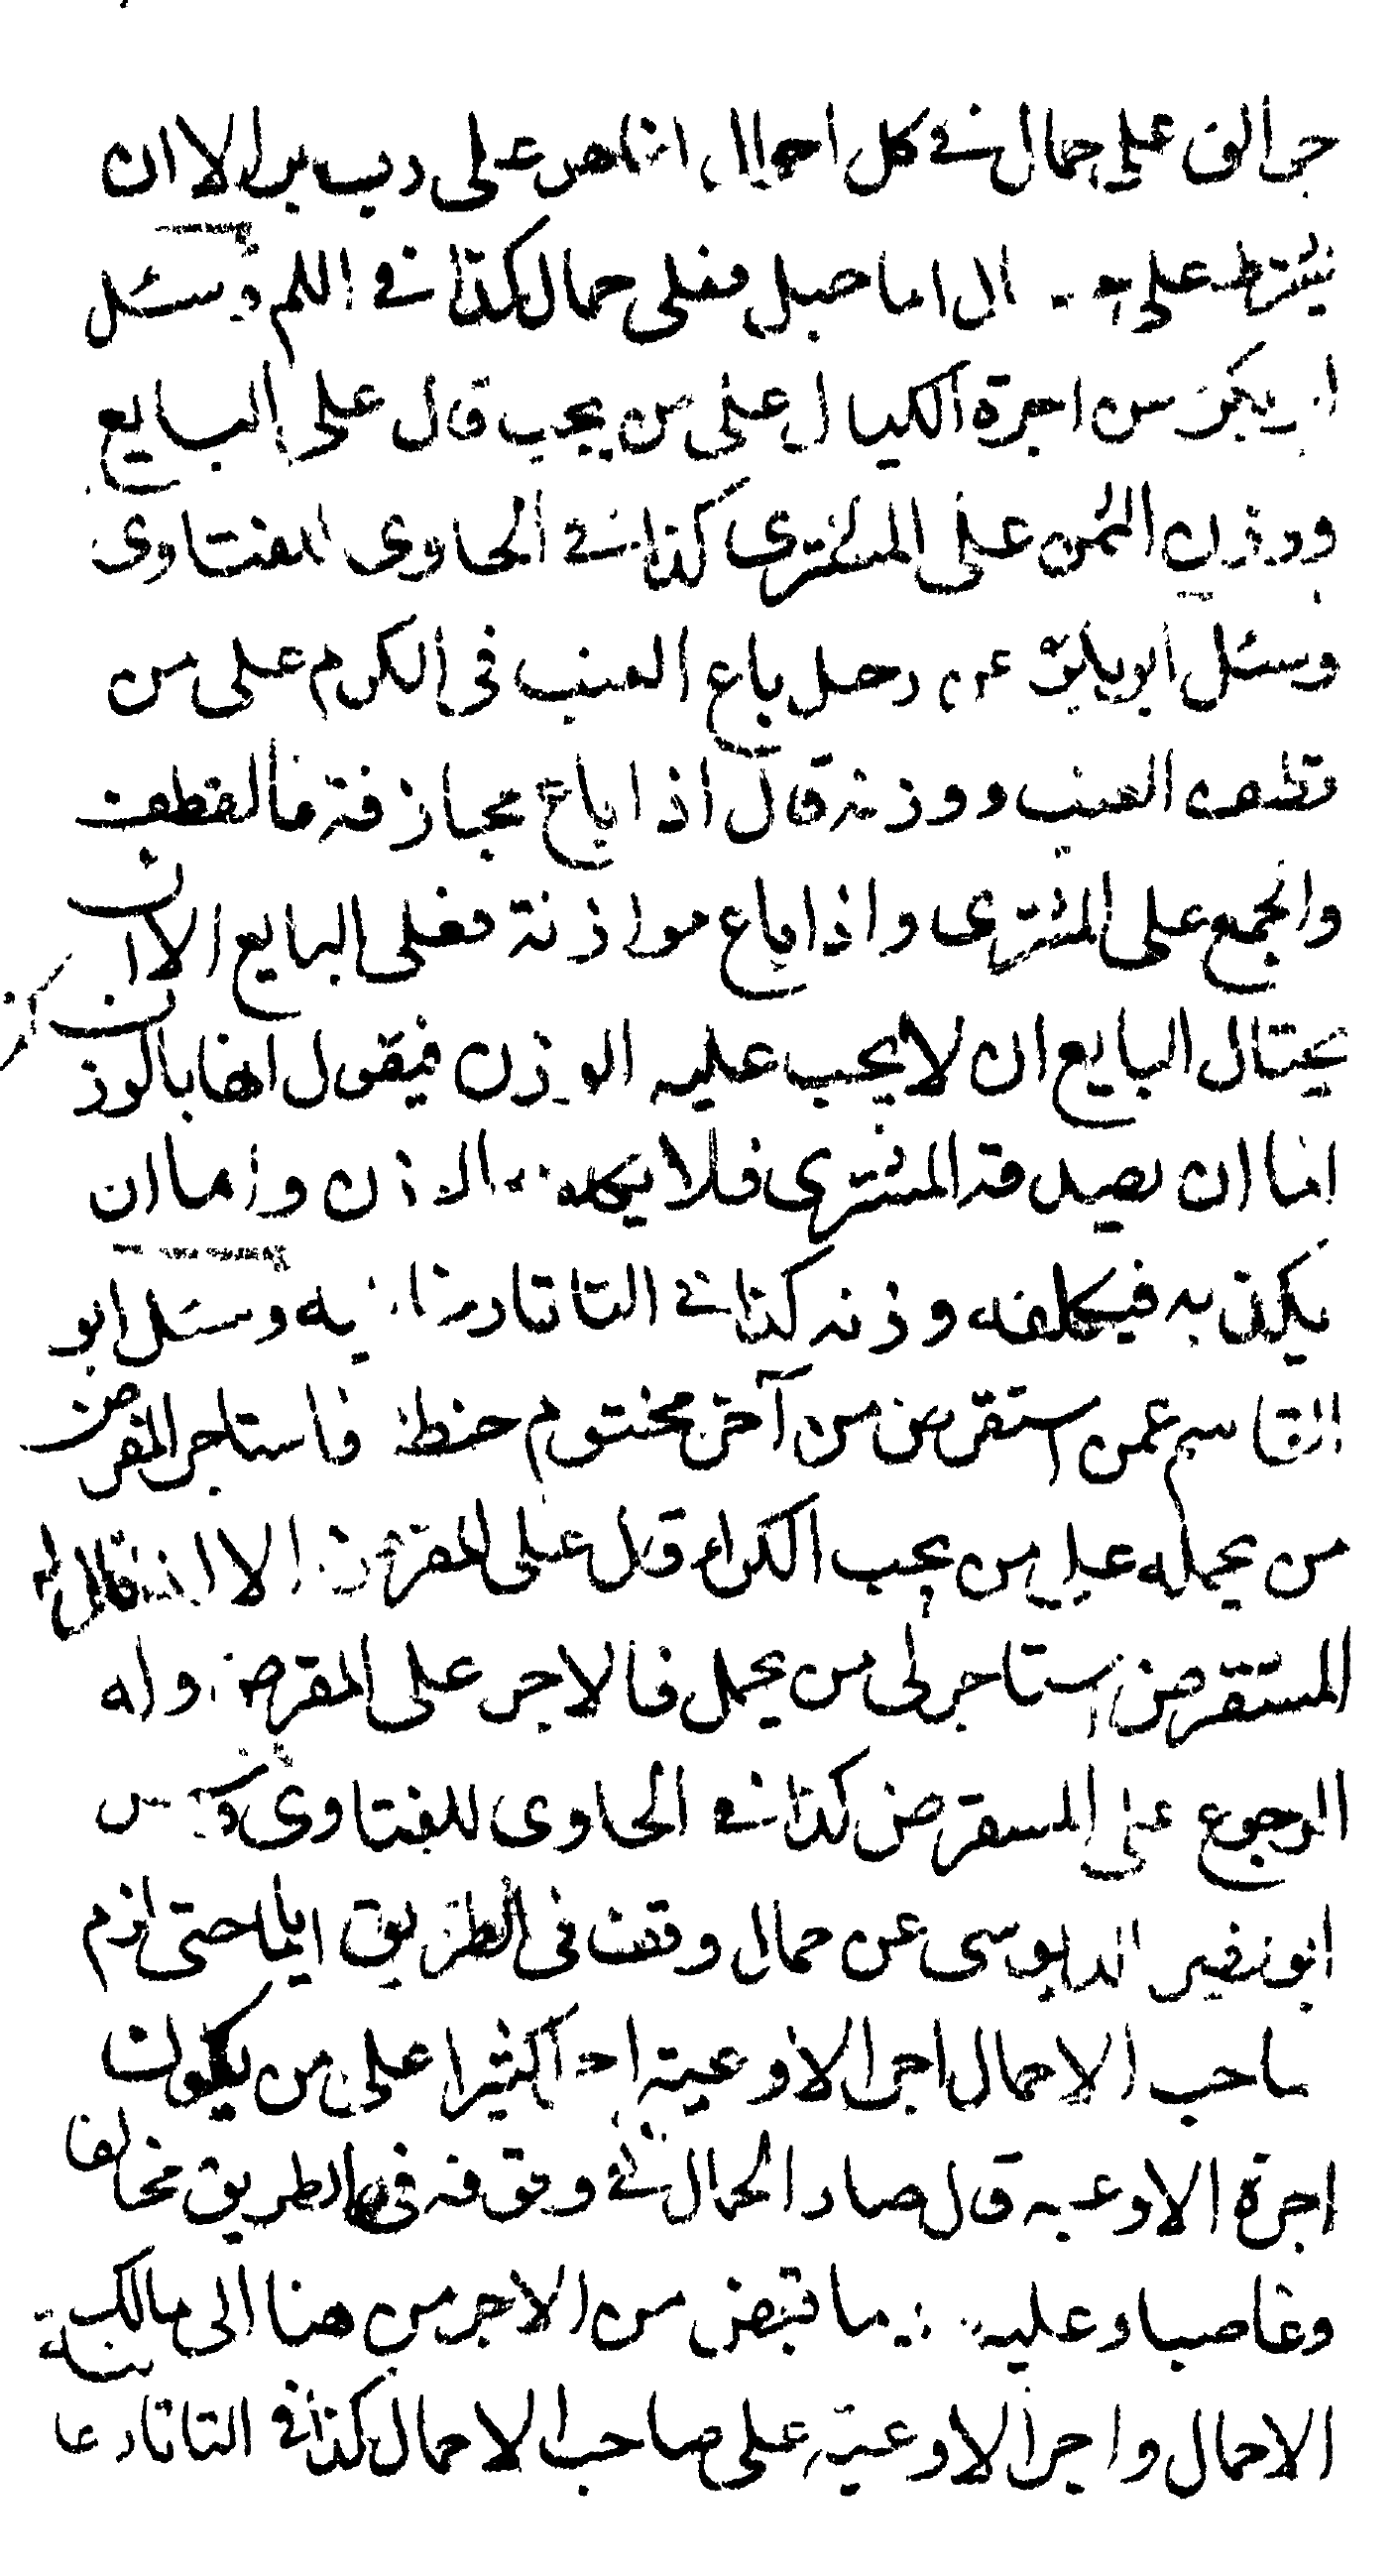 جوالق على حمال في كل احوال انما هو على رب بر الا ان
يشترط على الحمال اما حبل فعلى حمال كذا في اللم وسئل
ابو بكر عن اجرة الكيال على من يجب قال على البايع
ووزن الثمن على المشترى كذا في الحاوى للفتاوى
وسئل ابو بكر عن رجل باع العنب فى الكرم على من
قطف العنب ووزنه قال اذا باع مجازفة فالقطف
والجمع على المشترى واذا باع موازنة فعلى البايع الا ان
يحتال البايع ان لا يجب عليه الوزن فيقول انها بالوزن كذا
اما ان يصدقه المشترى فلا يكلفه الوزن واما ان
يكذبه فيكلفه وزنه كذا في التاتارخانيه وسئل ابو
القاسم عمن استقرض من آخر مختوم حنطة فاستاجر المقرض
من يحمله على من يجب الكراء قال على المقرض الا ان قال له
المستقرض استاجر لى من يحمل فالاجر على المقرض وله
الرجوع على المستقرض كذا في الحاوى للفتاوى وسئل
ابو نصير الدبوسى عن حمال وقف فى الطريق اياما حتى لزم
صاحب الاحمال اجر الاوعية اجرا كثيرا على من يكون
اجرة الاوعيه قال صار الحمال في وقوفه فى الطريق مخالفا
وغاصبا وعليه رد ما قبض من الاجر من هنا الى مالك
الاحمال واجر الاوعية على صاحب الاحمال كذا في التاتارخانية